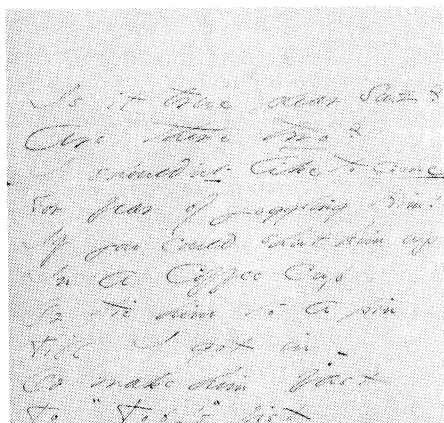 Is it true, dear Sue?
Are there two?
I should'nt like to come
For fear of joggling Him!
If you could shut him up
In a Coffee Cup,
Or tie him to a pin
Till I got in -
Or make him fast
To "Toby's" fist -